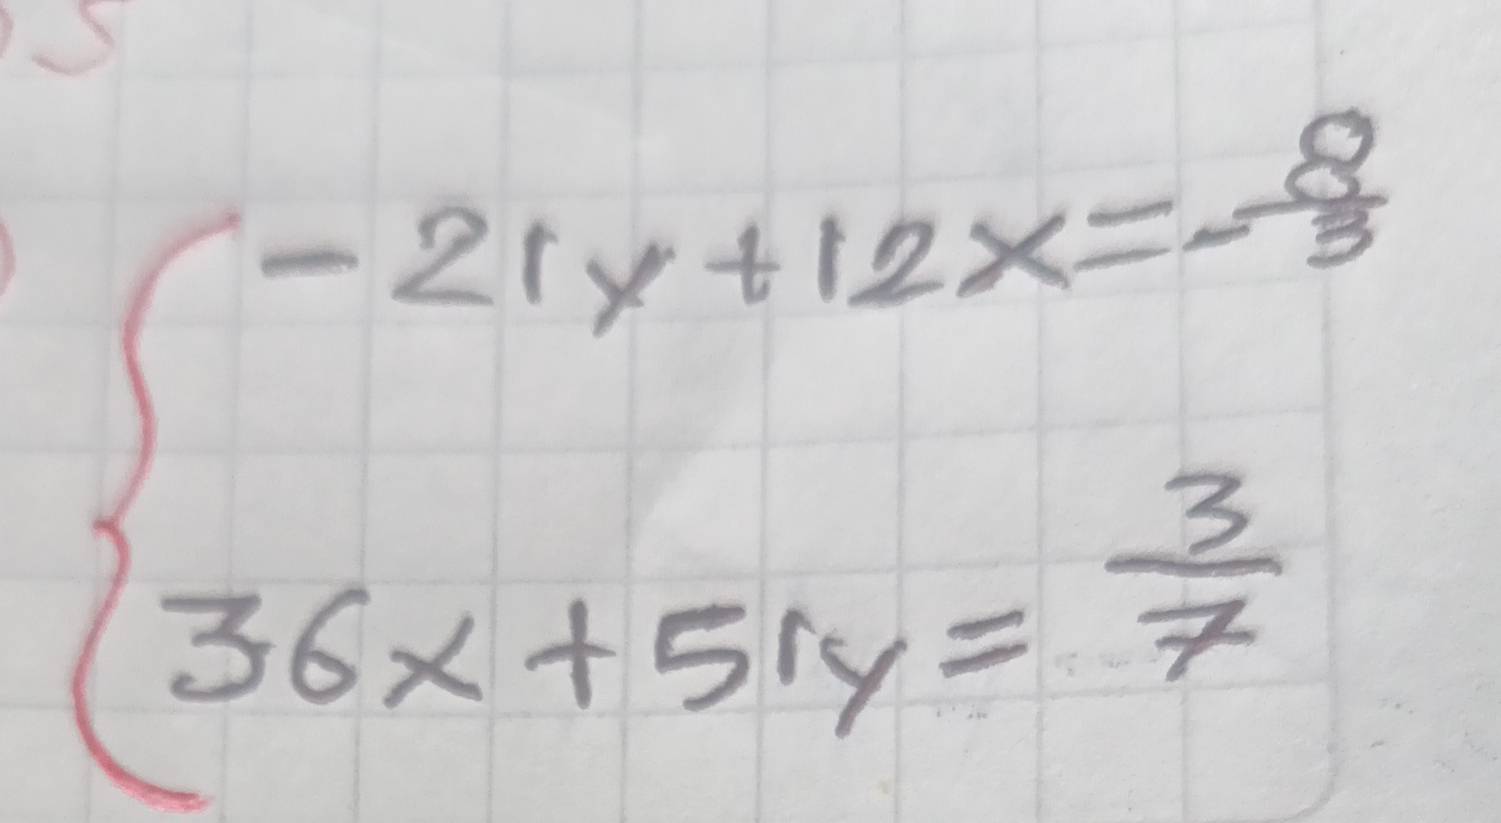 -21y+12x=-8/3
36x+51y=3/7